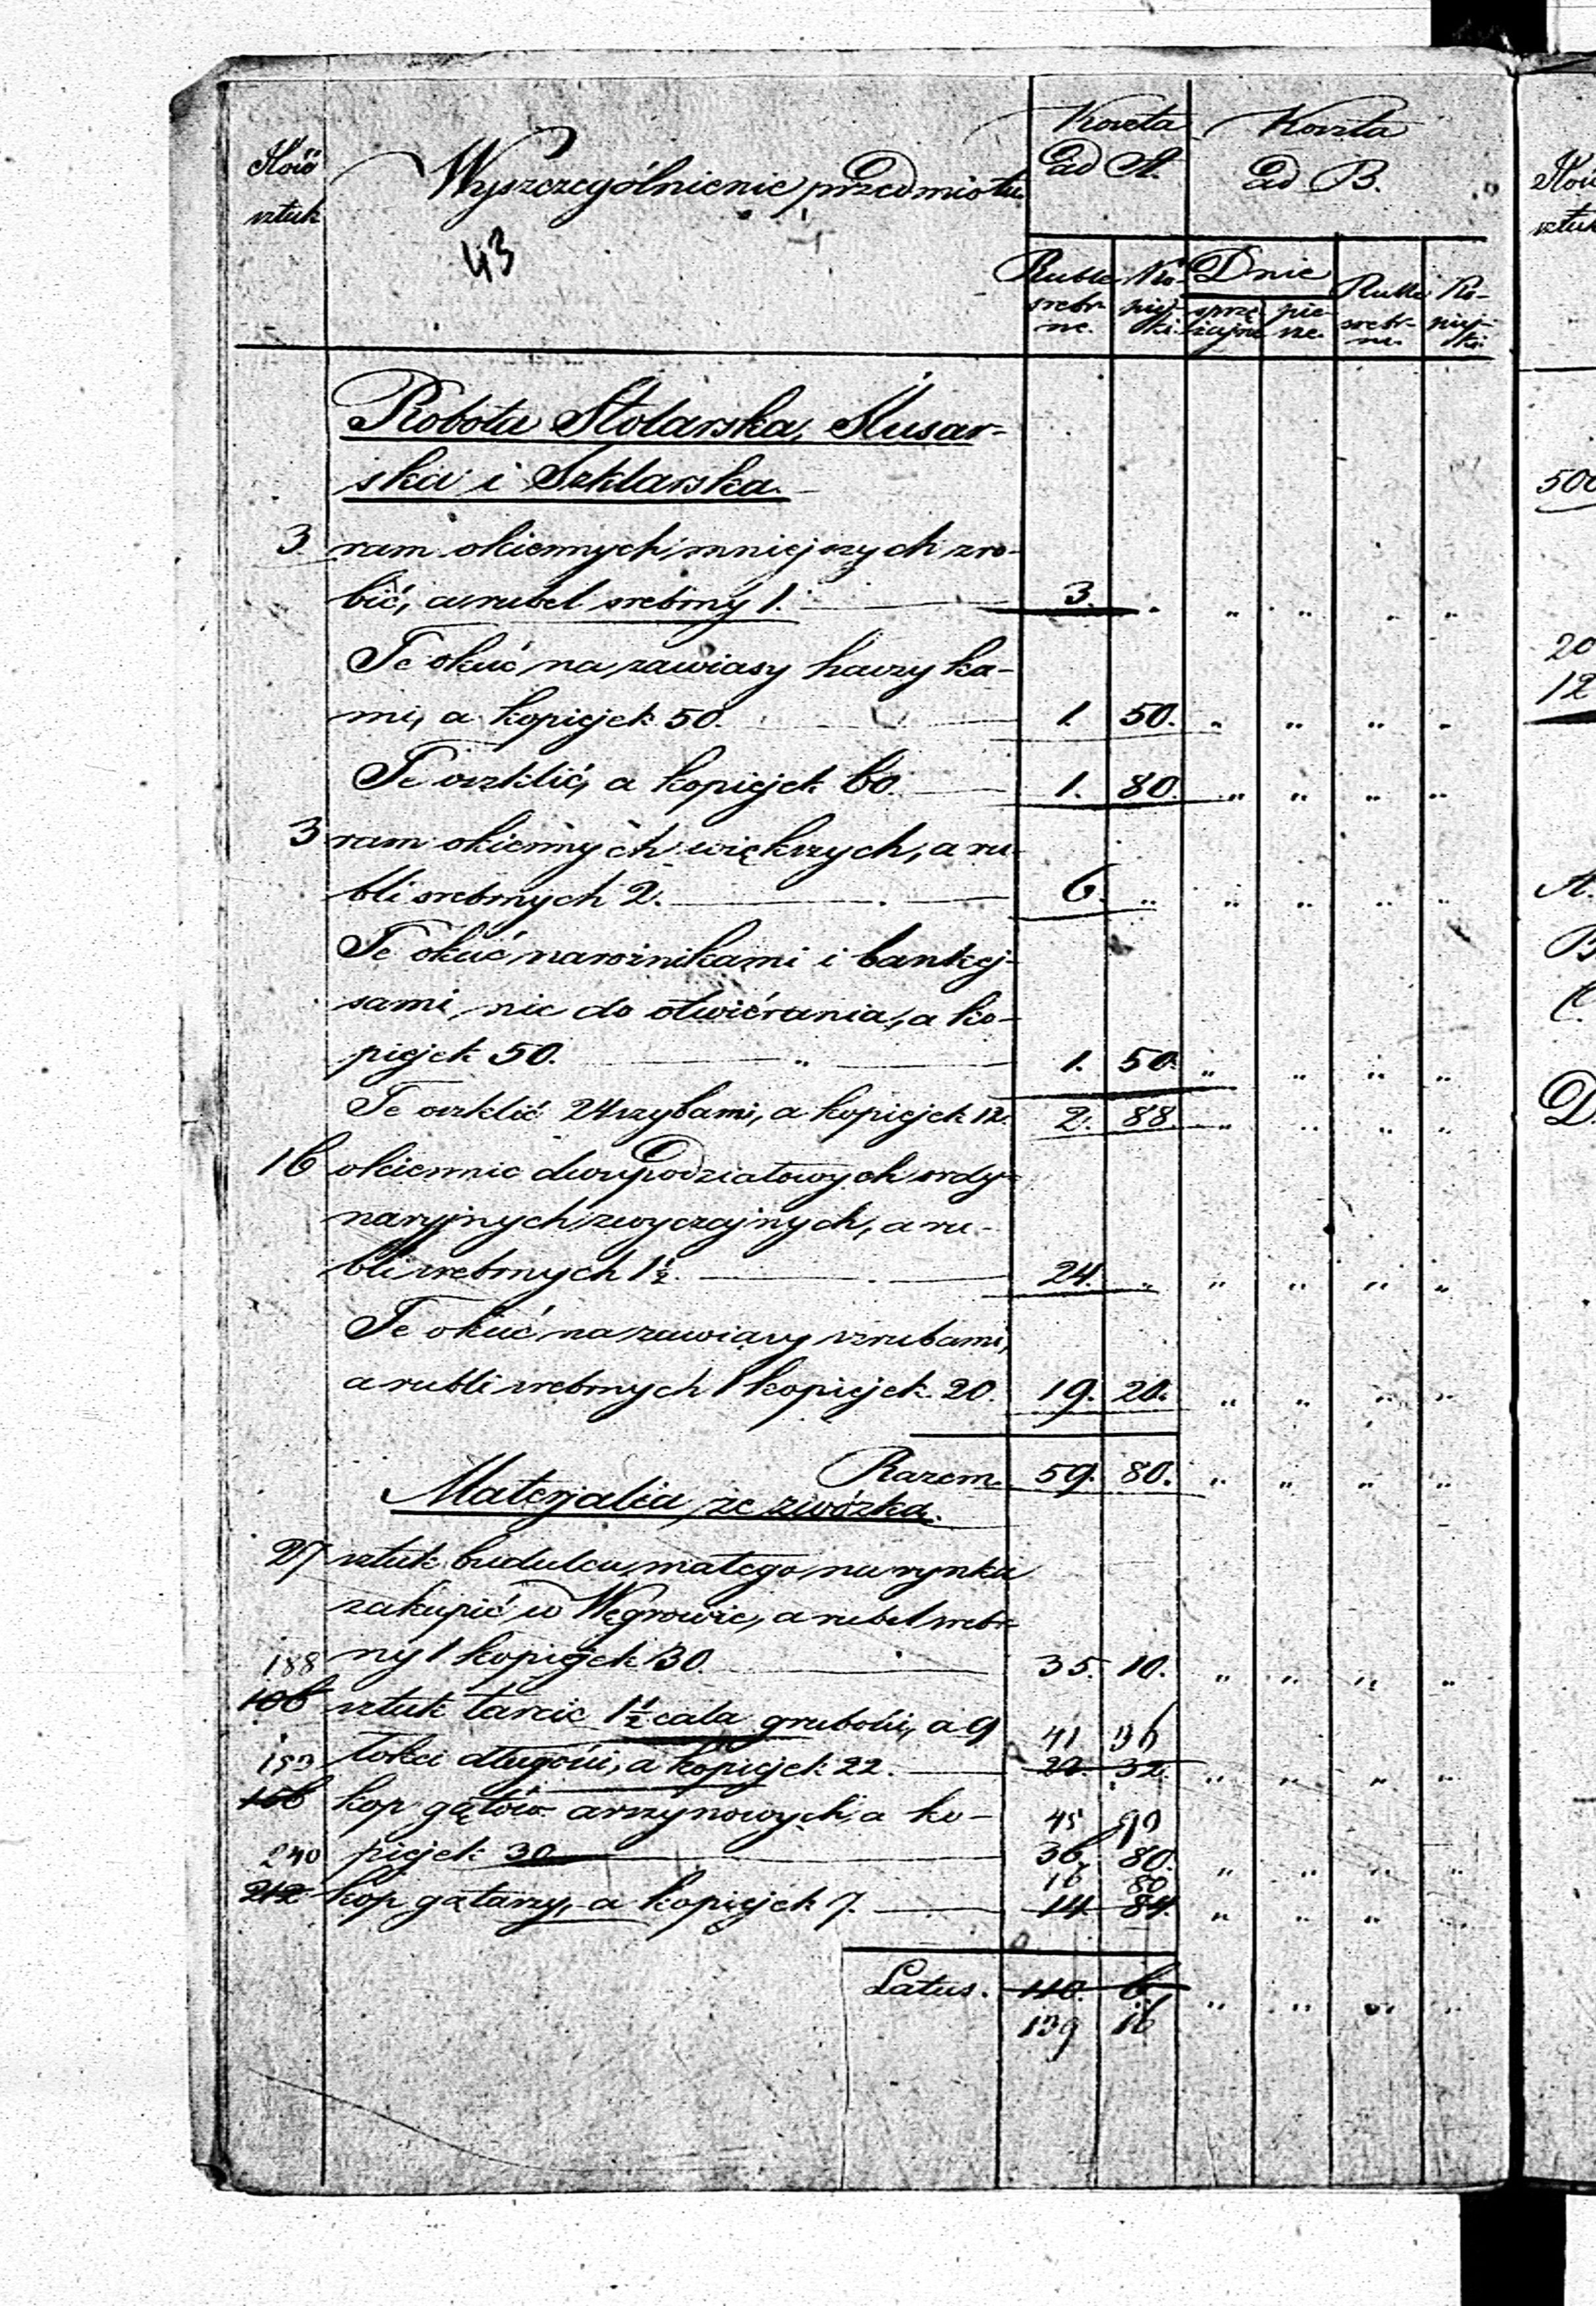 Ilość sztuk
Wyszczególnienie przedmiotu
43
Koszta ad A.
Koszta ad B.
Ruble srebr-ne.
Ko-piej-ki.
Dnie
sprzę-żajne
pie-sze.
Ruble srebr-ne.
Ko-piej-ki.
Robota Stolarska, Slusar-
ska i Szklarska.
3 ram okiennych mniejszych zro-
bić, a rubel srebrny 1. 3. "
Te okuć na zawiasy haczyka-
mi, a kopiejek 50. 1. 50.
Te oszklić, a kopiejek 60. 1. 80.
3 ram okiennych większych, a ru-
bli srebrnych 2. 6. "
Te okuć narożnikami i bankaj-
sami, nie do otwiérania, a ko-
piejek 50. 1. 50.
Te oszklić 24 szybami, a kopiejek 12. 2. 88.
16 okiennic dwupodziałowych ordy-
naryjnych zwyczajnych, a ru-
bli srebrnych 1½. 24. "
Te okuć na zawiasy szrubami,
a rubli srebrnych 1 kopiejek 20. 19. 20.
Razem 59. 80.
Materjalia ze zwózką.
27 sztuk budulcu małego, na rynku
zakupić w Węgrowie, a rubel srebr-
ny 1 kopiejek 30. 35. 10.
188
106 sztuk tarcic 1½ cala grubości, a 9 41 36
łokci długości, a kopiejek 22. 32.
153
kop gątów arszynowych, a ko- 45 90
piejek 30 36. 80.
240 16 80
212 kop gątarzy, a kopiejek 7. 14. 84.
Latus. 110. 6.
139 16
500
20
12
A.
B
C.
D.